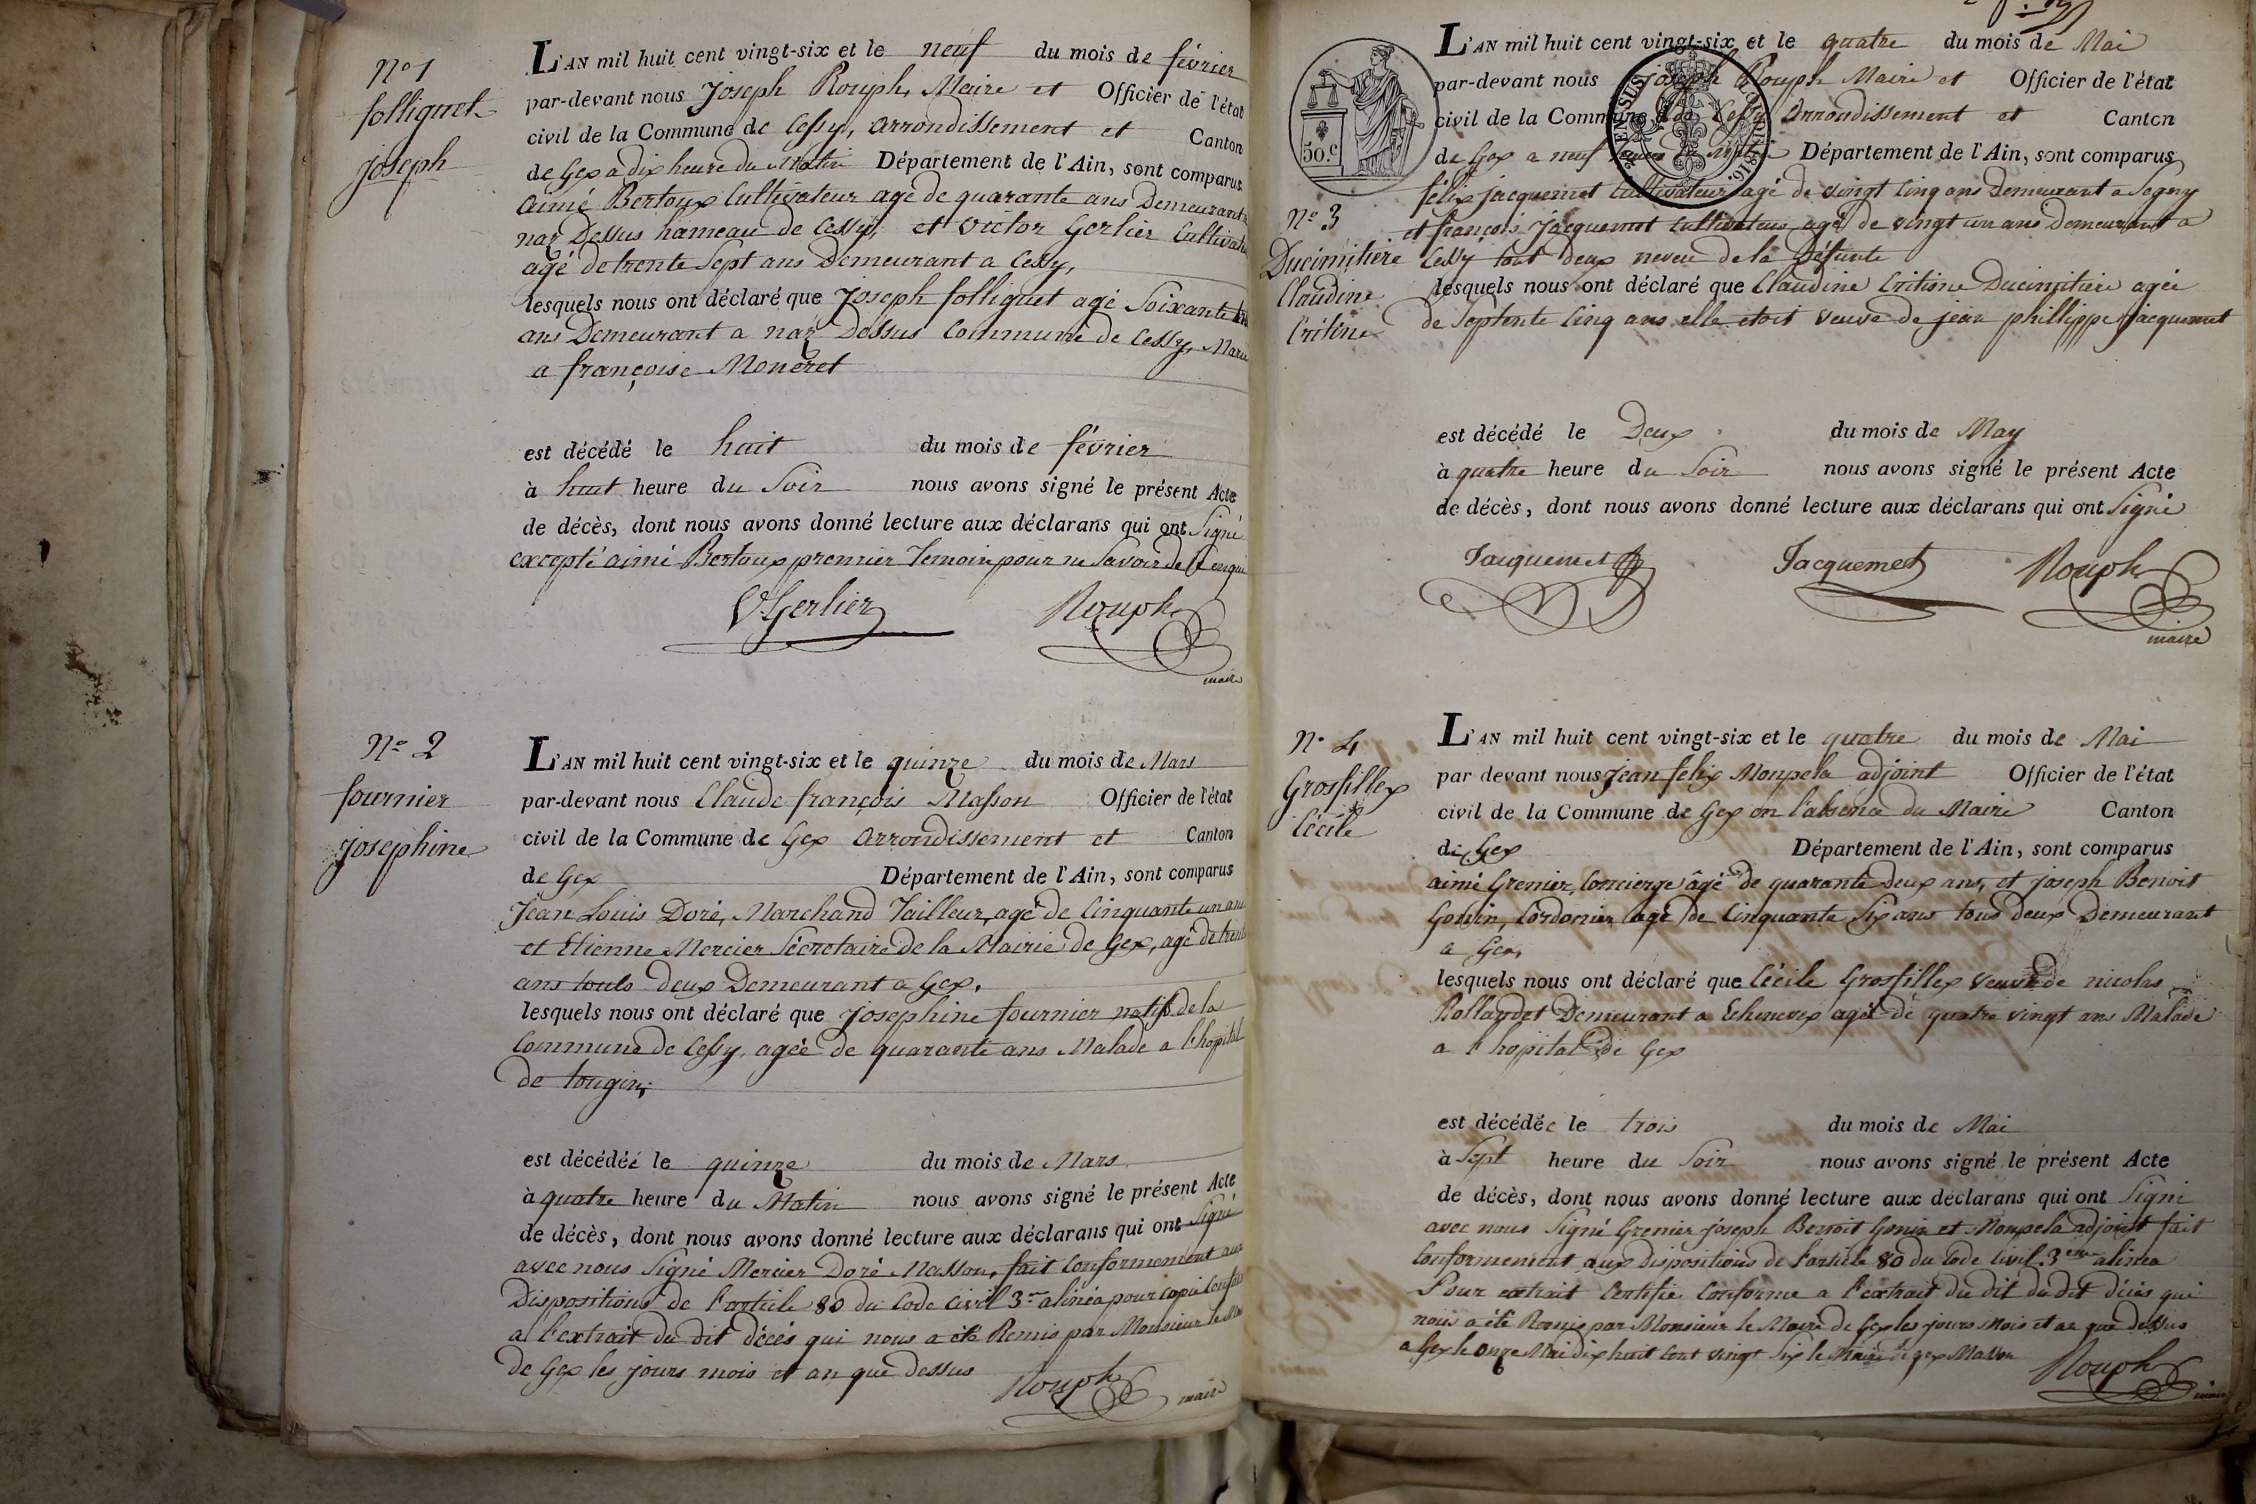 N° 1
folliguet
joseph
L'AN mil huit cent vingt-six et le neuf du mois de février
par-devant nous Joseph Rouph, Maire et Officier de l'état
civil de la Commune de Cessy, arrondissement et Canton
de Gex a dix heure du Matin Département de l'Ain, sont comparus
aimé Bertoux Cultivateur agé de quarante ans Demeurant a
naz Dessus hameau de Cessy, et victor Gerlier Cultivateur
agé de trente Sept ans Demeurant a Cessy,
lesquels nous ont déclaré que Joseph folliguet agé Soixante
ans Demeurant a naz Dessus Commune de Cessy, Marié
a françoise Moneret
est décédé le huit du mois de février
à huit heure du Soir nous avons signé le présent Acte
de décès, dont nous avons donné lecture aux déclarans qui ont Signé
excepté aimé Bertoux premier temoin pour ne Savoir de ce enquis
V Gerlier Rouph
maire
N° 2
fournier
josephine
L'AN mil huit cent vingt-six et le quinze du mois de Mars
par-devant nous Claude françois Masson Officier de l'état
civil de la Commune de Gex arrondissement et Canton
de Gex Département de l'Ain, sont comparus
Jean Louis Doré, Marchand Tailleur, agé de Cinquante un ans
et Etienne Mercier Sécretaire de la Mairie de Gex, agé de trente
ans touts deux Demeurant a Gex,
lesquels nous ont déclaré que Josephine fournier natif de la
Commune de Cessy, agée de quarante ans Malade a l'hopital
de tougin;
est décédée le quinze du mois de Mars
à quatre heure du Matin nous avons signé le présent Acte
de décès, dont nous avons donné lecture aux déclarans qui ont Signé
avec nous Signé Mercier Doré Masson, fait Conformement aux
Dispositions de l'article 80 du Code Civil 3me alinéa pour copie Conforme
a l'extrait du dit décés qui nous a été Remis par Monsieur le Maire
de Gex les jours mois et an que dessus
Rouph maire
50.c
L'AN mil huit cent vingt-six et le quatre du mois de Mai
par-devant nous joseph Rouph Maire et Officier de l'état
civil de la Commune de Cessy Arrondissement et Canton
de Gex a neuf heures du matin Département de l'Ain, sont comparus
félix jacquemet Cultivateur agé de vingt Cinq ans Demeurant a Segny
et françois Jacquemet Cultivateur agé de vingt un ans demeurant a
Cessy tout deux neveu de la Défunte
N° 3
Ducimitiere
Claudine
Critine
lesquels nous ont déclaré que Claudine Critine Ducimitiere agée
de Septente Cinq ans elle etoit veuve de jean phillippe jacquemet
est décédé le Deux du mois de May
à quatre heure du Soir nous avons signé le présent Acte
de décès, dont nous avons donné lecture aux déclarans qui ont Signé
Jacquemet Jacquemet Rouph
maire
N° 4
Grosfillex
Cécile
L'AN mil huit cent vingt-six et le quatre du mois de Mai
par devant nous Jean felix Moupela adjoint Officier de l'état
civil de la Commune de Gex en l'absence du Maire Canton
de Gex Département de l'Ain, sont comparus
aimé Grenier, Concierge âgé de quarante deux ans, et joseph Benoit
Gonin, Cordonier agé de Cinquante Six ans tous deux Demeurant
a Gex,
lesquels nous ont déclaré que Cécile Grosfillex veuve de nicolas
Rollandet Demeurant a Echenevex agée de quatre vingt ans Malade
a l'hopital de Gex
est décédée le trois du mois de Mai
à Sept heure du Soir nous avons signé le présent Acte
de décès, dont nous avons donné lecture aux déclarans qui ont Signé
avec nous Signé Grenier joseph Benoit Gonin et Moupela adjoint fait
Conformement aux dispositions de l'article 80 du Code Civil 3eme alinéa
Pour extrait Certifié Conforme a l'extrait du dit du dit décès qui
nous a été Remis par Monsieur le Maire de Gex les jours Mois et an que dessus
a Gex le onze Mai dix huit Cent vingt Six le Maire de gex Masson
Rouph
maire